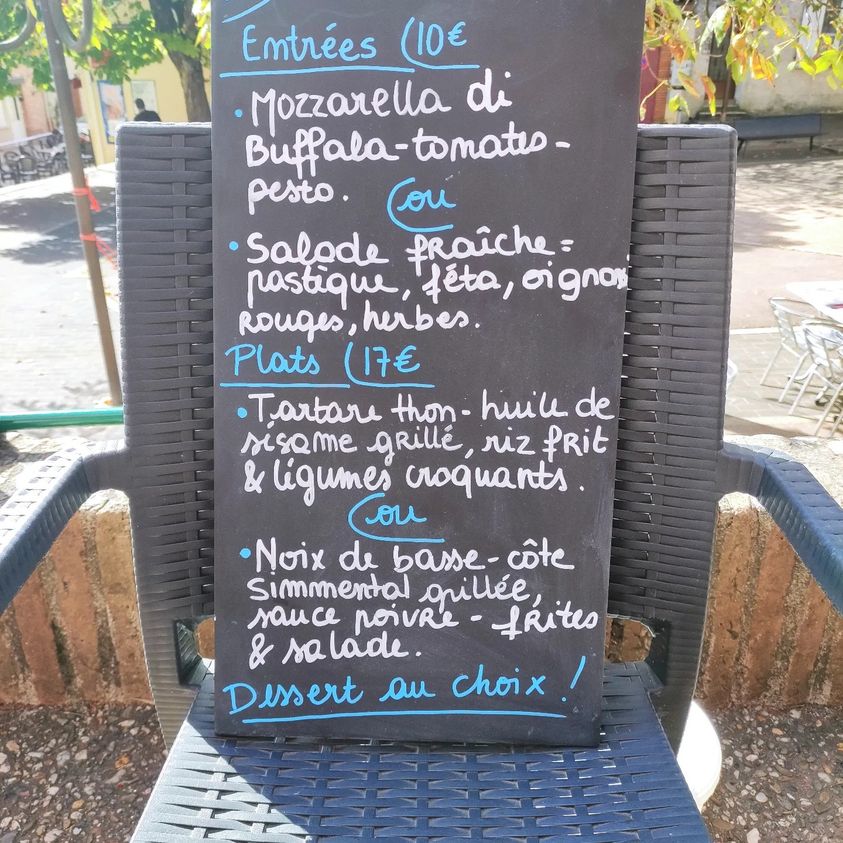 Entrées (10€
• Mozzarella di
Buffala-tomates-
pesto.
(ou
• Salade fraîche=
pastique, féta, oignons
rouges, herbes.
Plats (17€
• Tartare thon - huile de
sésame grillé, riz frit
& légumes croquants.
(ou
• Noix de basse-côte
simmmental grillée,
sauce poivre - frites
& salade.
Dessert au choix !